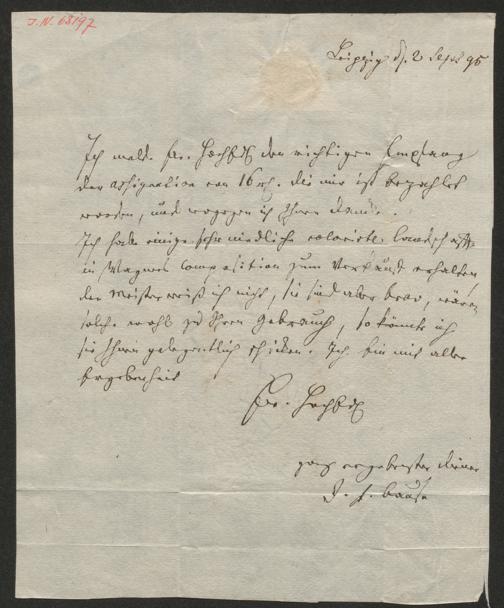 J.N. 68197
Leipzig d. 2 Sept 95
Ich melde Ew. Hochedl den richtigen Empfang
der assignation von 16 rh. die mir ist bezahlet
worden, und wogegen ich Ihnen danke.
Ich habe einige sehr niedliche colorirte Landschafften
in Wagners Composition zum Verkauf erhalten
der Meister weiß ich nicht, sie sind aber brav, wären
solche wohl zu Ihren Gebrauch, so könnte ich
sie Ihnen gelegentlich schicken. Ich bin mit aller
Ergebenheit
Ew. Hochedl
ganz ergebenster Diener
J. F. Bause